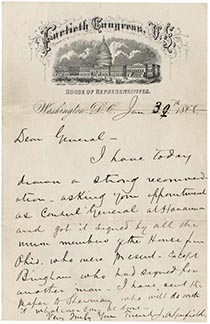 Fortieth Congress, U.S.
HOUSE OF REPRESENTATIVES.
Washington, D.C. Jan 30th 186
Dear General—
I have today
drawn a strong recommend
ation – asking your appointment
as Consul General at Havana
and got it signed by all the
union members of the House from
Ohio. who were present – except
Bingham who had signed for
another man – I have sent the
paper to Sherman who will do with
it whatever can be done –
Very Truly Yours J. A. Garfield